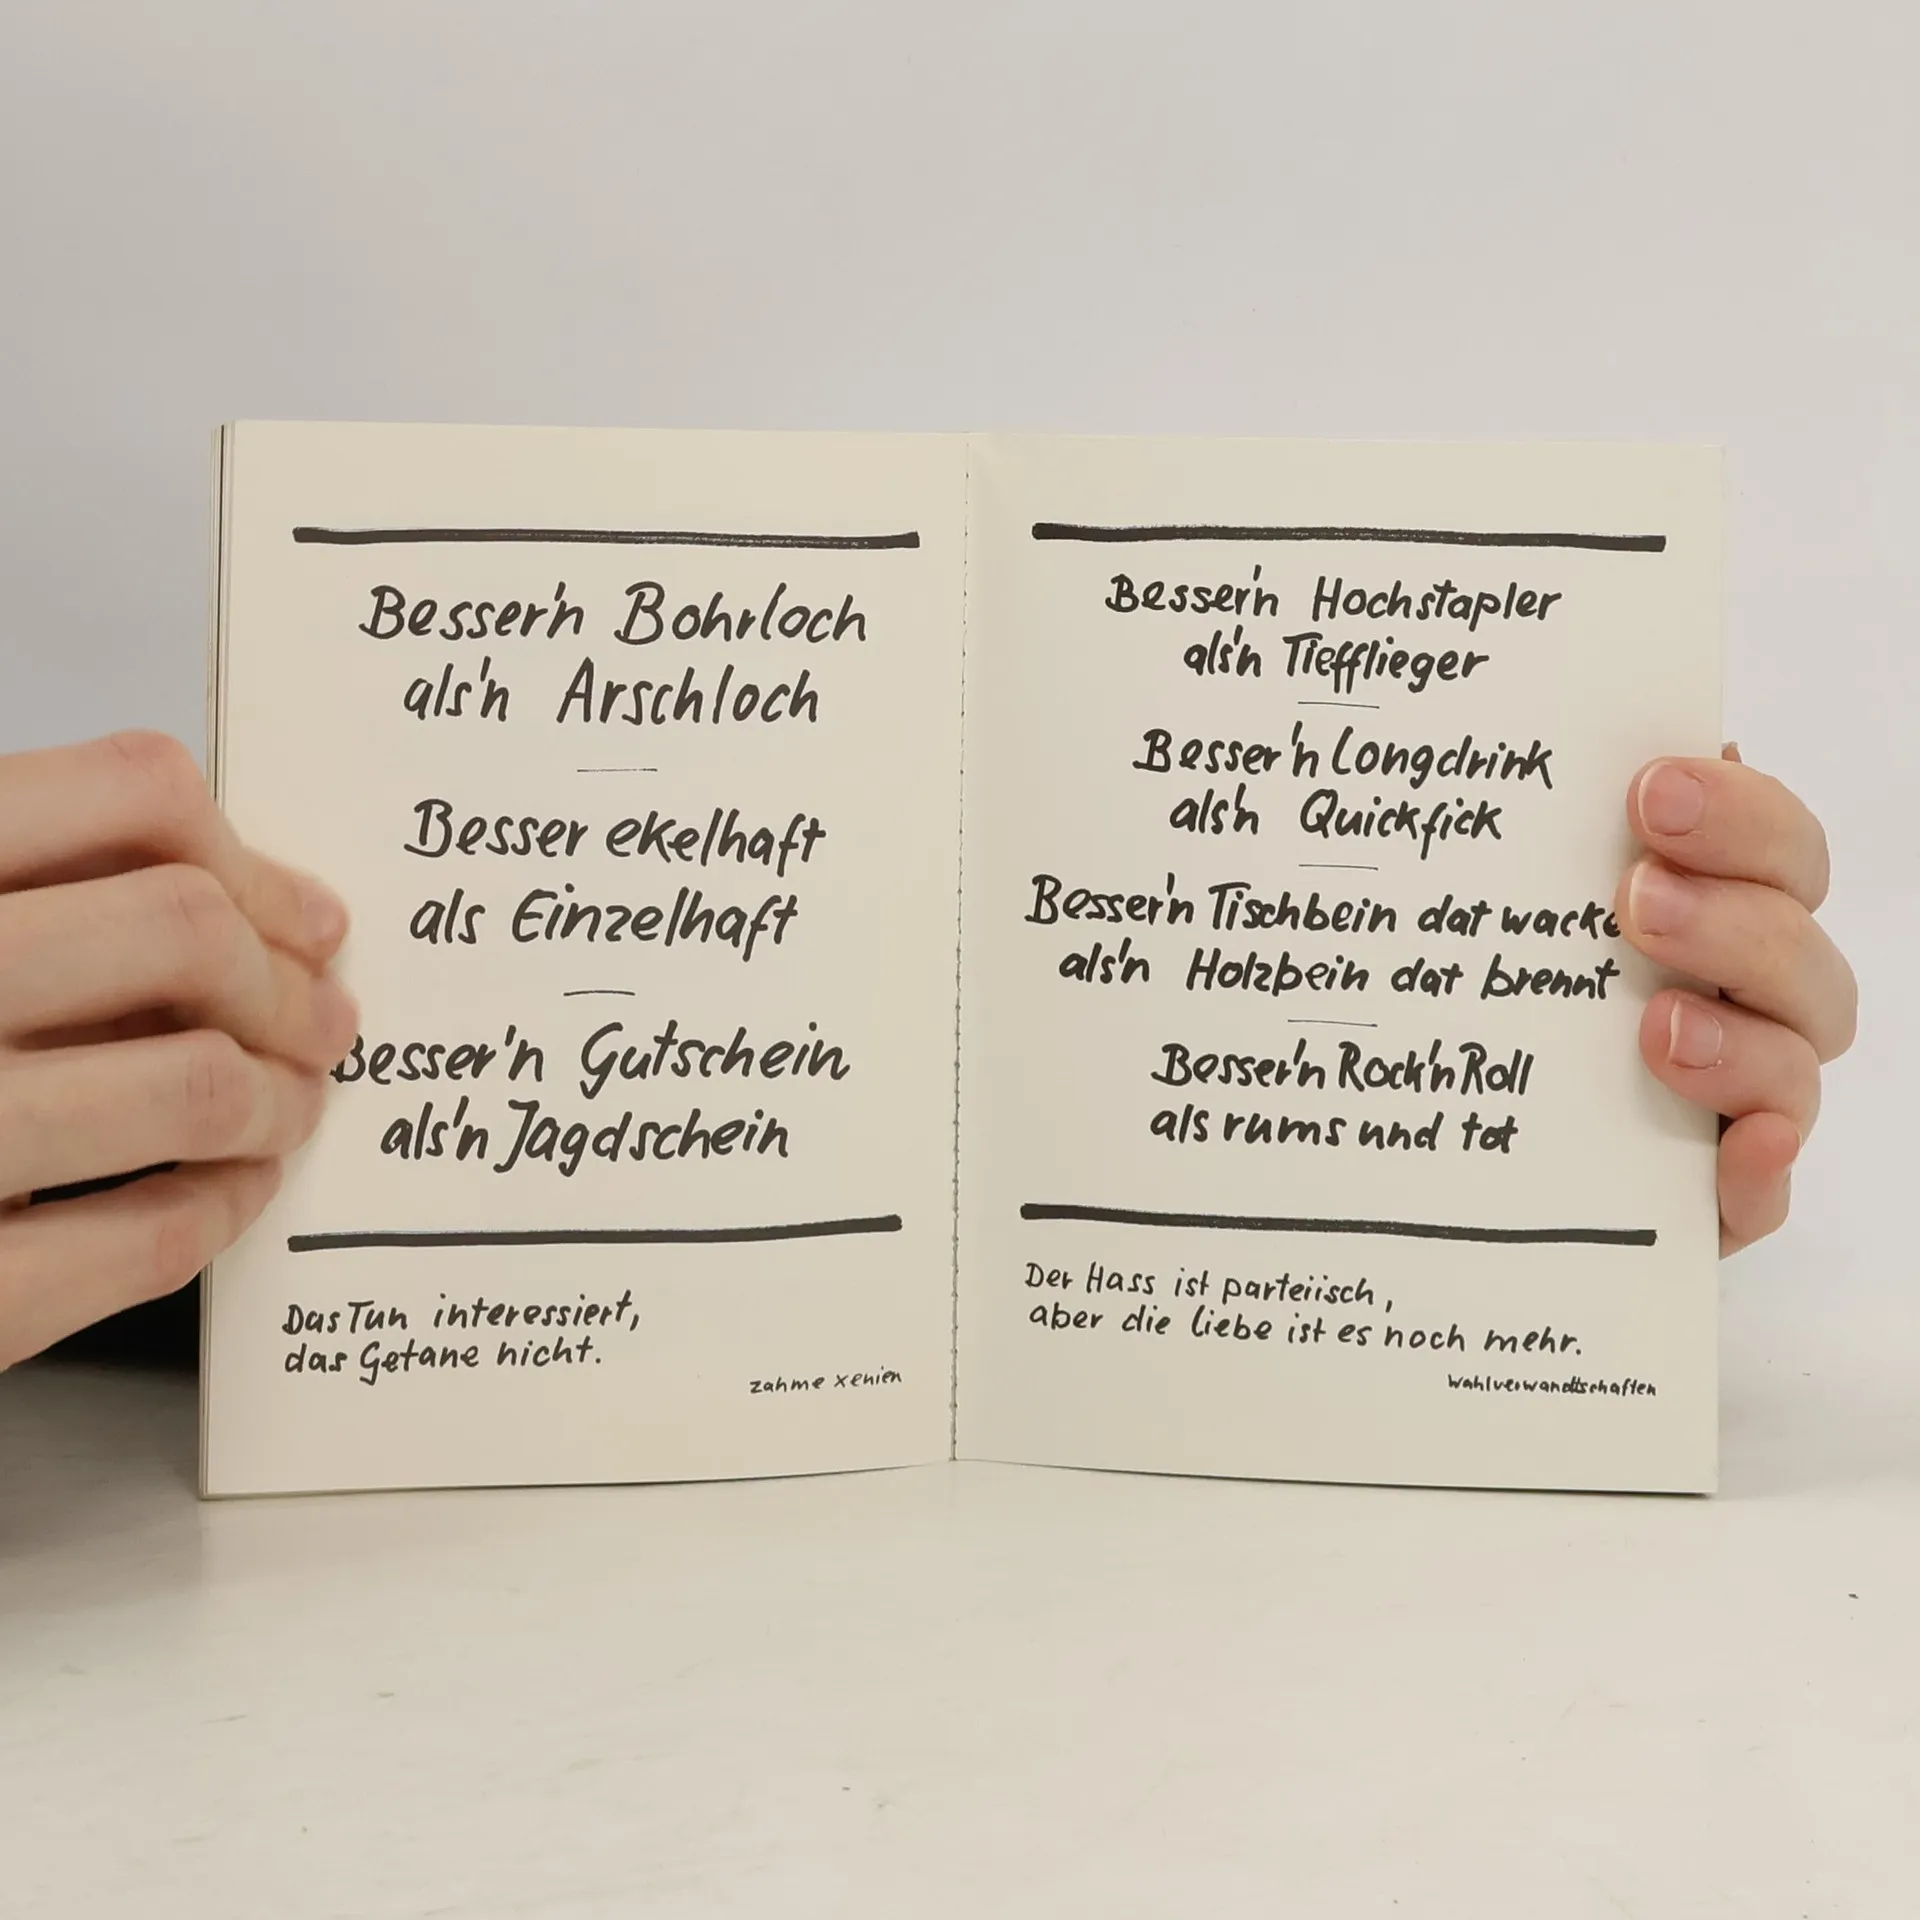 Besser'n Bohrloch
als'n Arschloch
Besser ekelhaft
als Einzelhaft
Besser'n Gutschein
als'n Jagdschein
Das Tun interessiert,
das Getane nicht.
zahme xenien
Besser'n Hochstapler
als'n Tiefflieger
Besser'n Longdrink
als'n Quickfick
Besser'n Tischbein dat
als'n Holzbein dat brennt
Besser'n Rock'n Roll
als rums und tot
Der Hass ist parteiisch,
aber die Liebe ist es noch mehr.
Wahlverwandtschaften